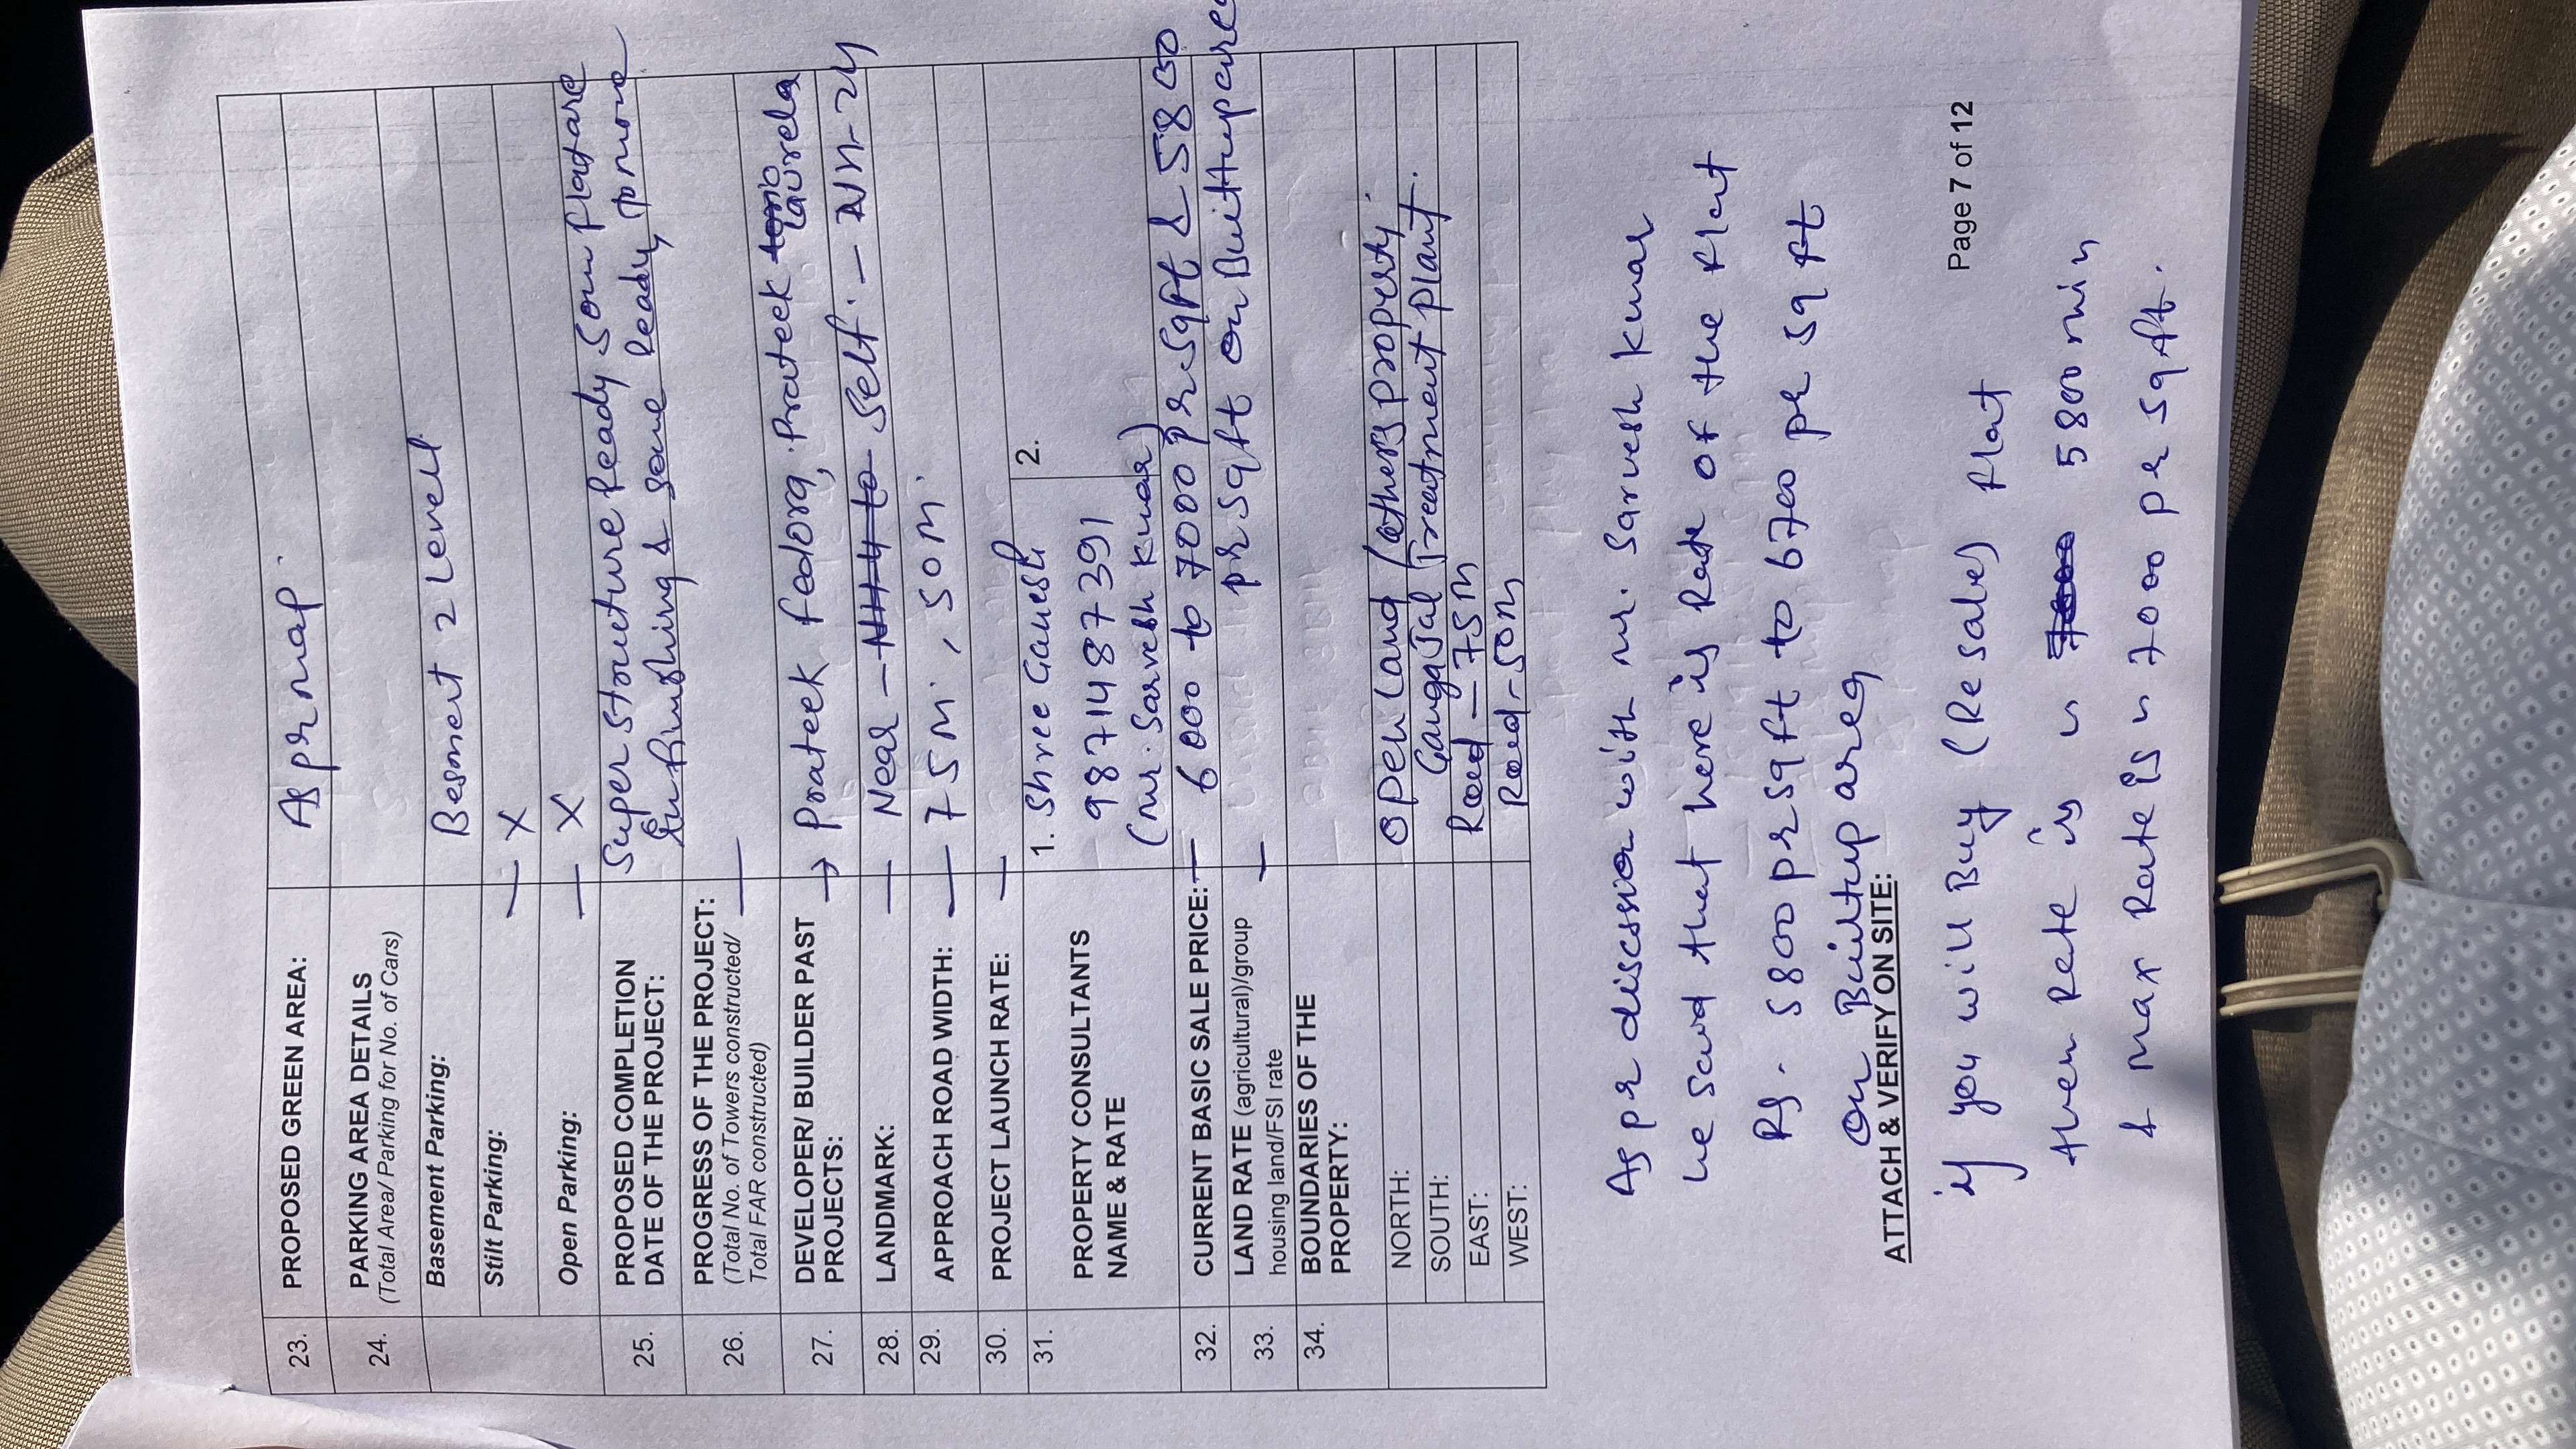 23. PROPOSED GREEN AREA: As pr map.
24. PARKING AREA DETAILS
(Total Area/ Parking for No. of Cars)
Basement Parking: Besment 2 Level.
Stilt Parking: — X
Open Parking: — X
25. PROPOSED COMPLETION DATE OF THE PROJECT: Super Structure Ready Som flat are
finishing & some Ready,
26. PROGRESS OF THE PROJECT: —
(Total No. of Towers constructed/
Total FAR constructed)
27. DEVELOPER/ BUILDER PAST PROJECTS: → Prateek fedora, Prateek laurela
28. LANDMARK: — Near – NH4 to Self. – NH-24
29. APPROACH ROAD WIDTH: — 75M, 50M.
30. PROJECT LAUNCH RATE: —
31. PROPERTY CONSULTANTS NAME & RATE 1. Shree Ganesh 2.
9871487391
(Mr. Sarvesh Kumar)
32. CURRENT BASIC SALE PRICE: — 6000 to 7000 pr sqft & 5800
33. LAND RATE (agricultural)/group housing land/FSI rate — pr sqft on Builtup area
34. BOUNDARIES OF THE PROPERTY:
NORTH: Open Land / others property.
SOUTH: Gangajal Treatment plant.
EAST: Road – 75M
WEST: Road – 50M
As pr discussion with mr. Sarvesh Kumar
he said that here is Rate of the flat
Rs. 5800 pr sqft to 6700 pr sq ft
on Builtup area
ATTACH & VERIFY ON SITE:
if you will Buy (Resale) flat
then Rate is 5800 min
& max Rate is 7000 pr sq ft.
Page 7 of 12